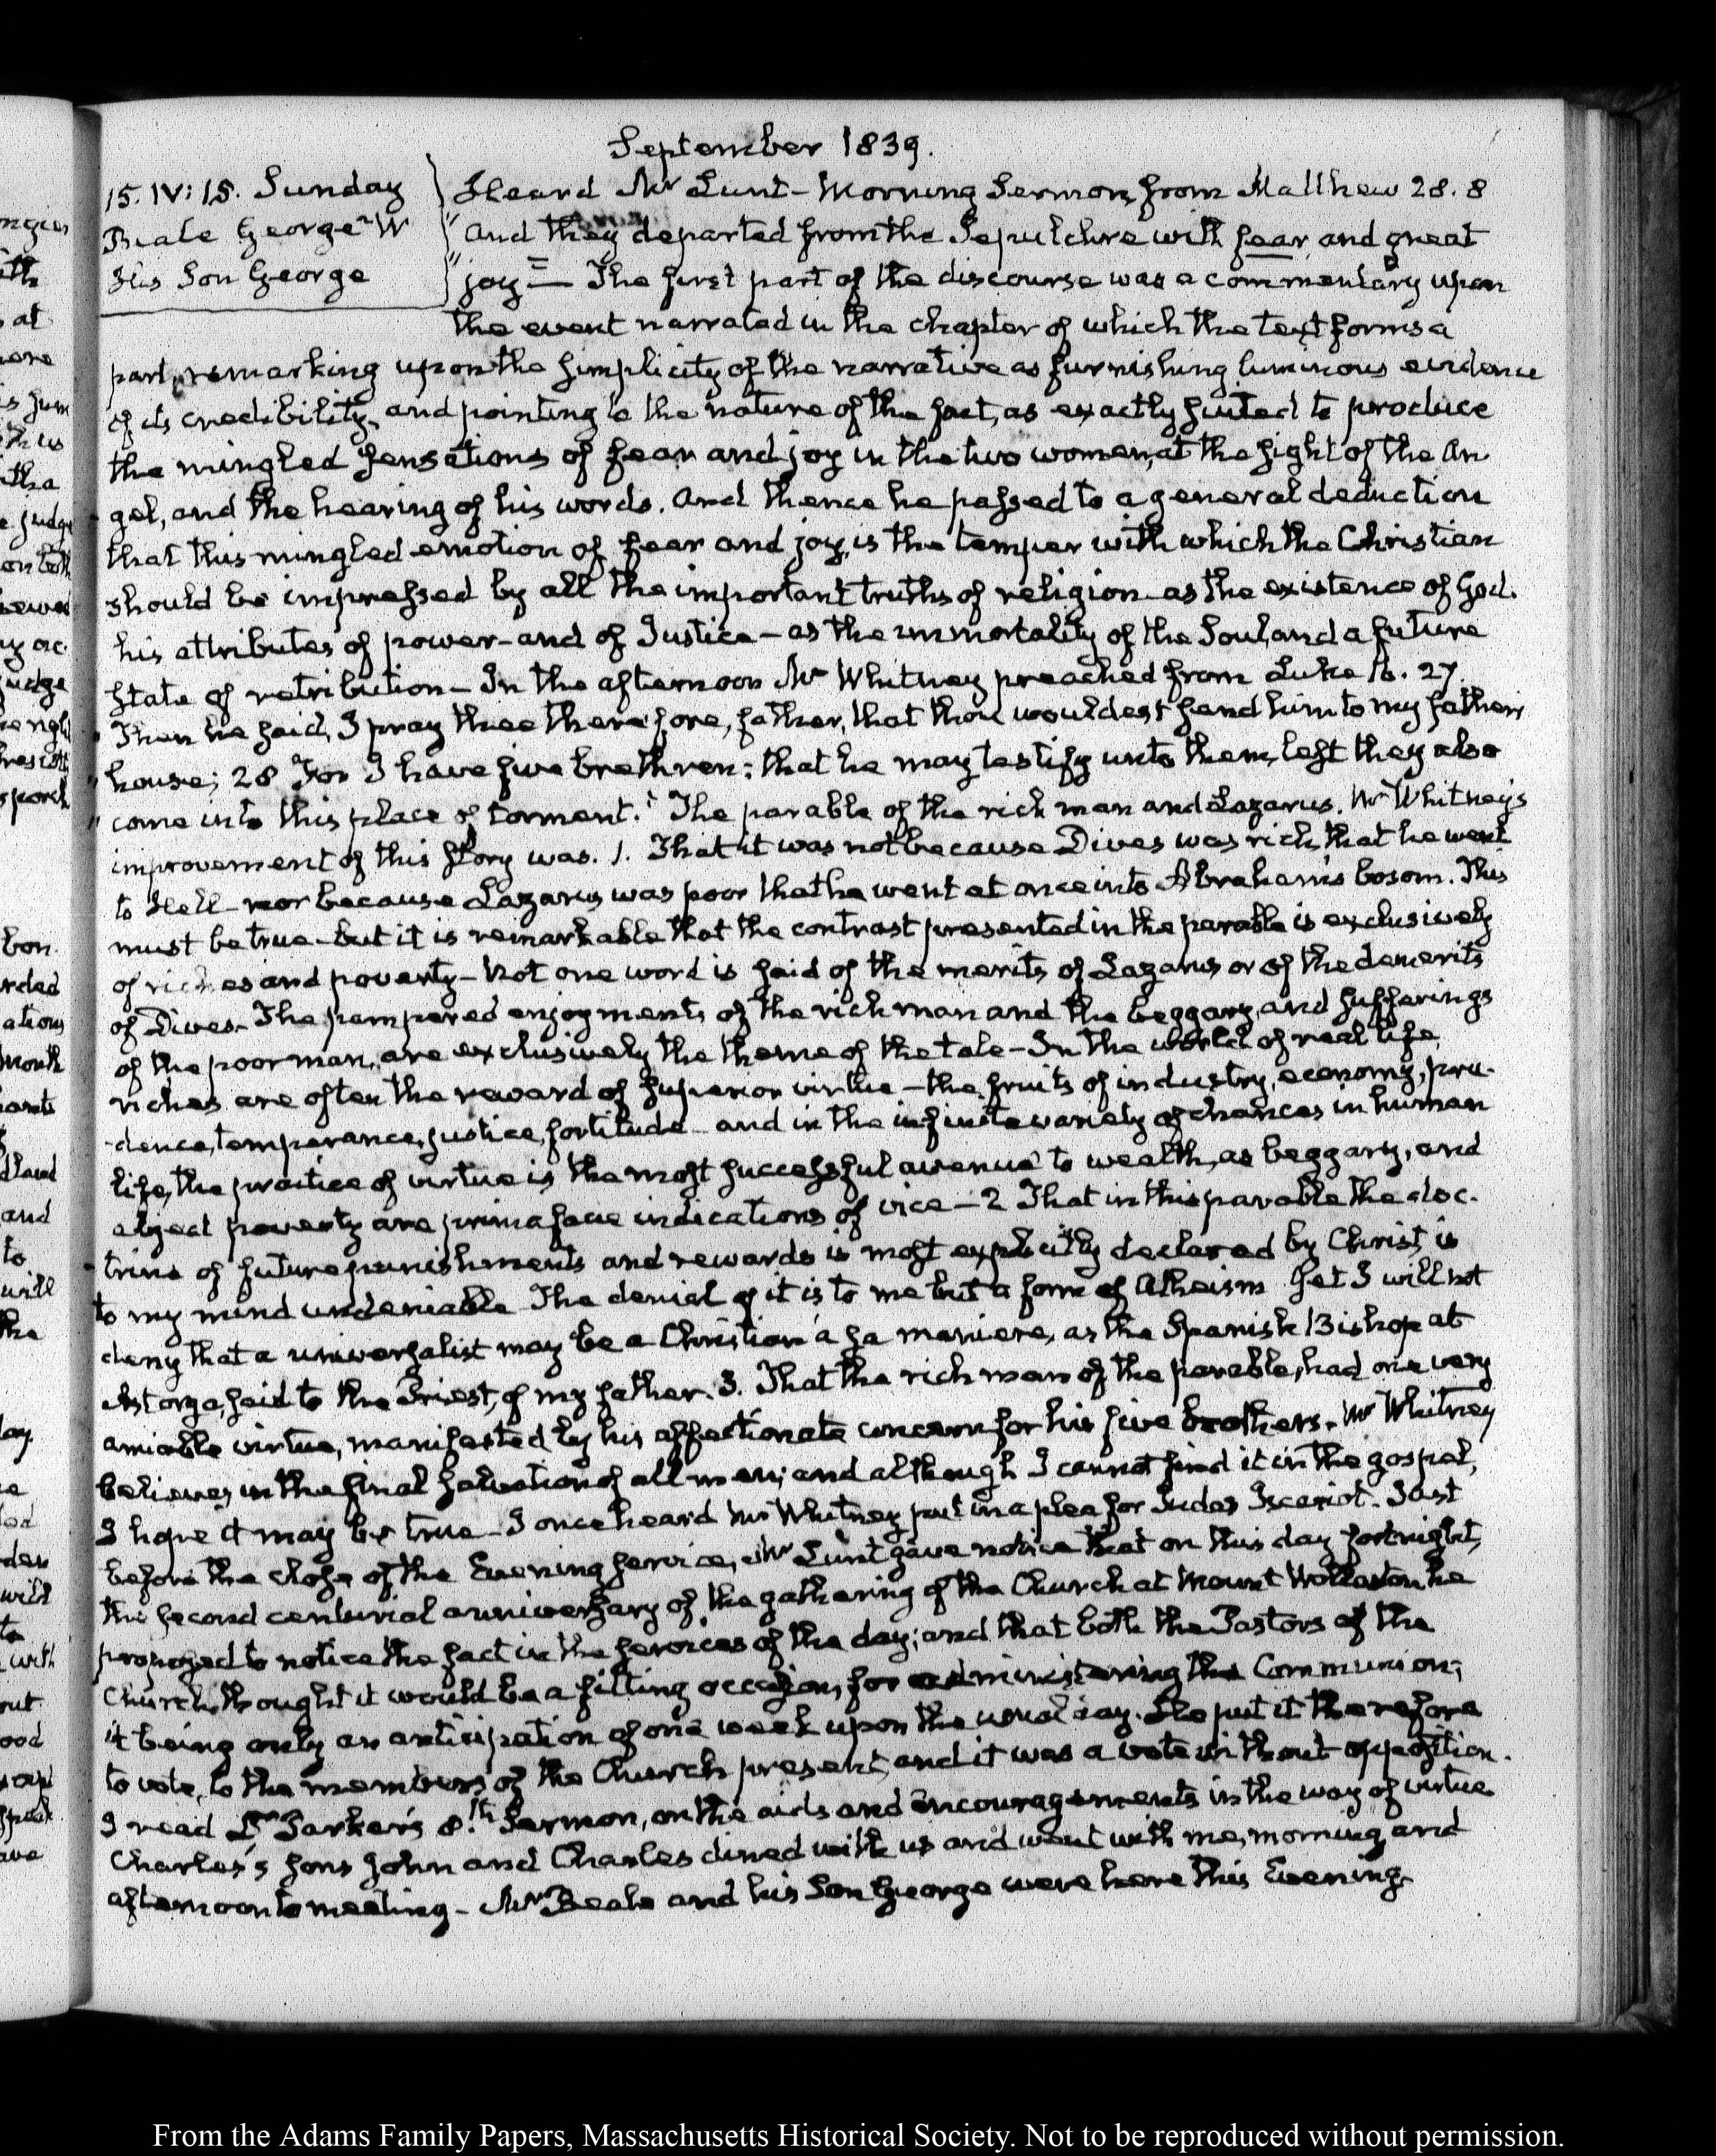 September 1839.
15. IV: 15. Sunday
Beale George W
His Son George
Heard Mr Lunt – Morning Sermon, from Matthew 28. 8
"And they departed from the Sepulchre with fear and great
"joy" — The first part of the discourse was a commentary upon
the event narrated in the chapter of which the text forms a
part, remarking upon the simplicity of the narrative as furnishing luminous evidence
of its credibility, and pointing to the nature of the fact, as exactly suited to produce
the mingled sensations of fear and joy in the two women, at the sight of the An
gel, and the hearing of his words. And thence he passed to a general deduction
that this mingled emotion of fear and joy, is the temper with which the Christian
should be impressed by all the important truths of religion as the existence of God.
his attributes of power – and of Justice – as the immortality of the Soul, and a future
State of retribution – In the afternoon Mr Whitney preached from Luke 16. 27.
" Then he said, I pray thee therefore, father, that thou wouldest send him to my father's
" house; 28 For I have five brethren; that he may testify unto them, lest they also
" come into this place of torment." The parable of the rich man and Lazarus. Mr Whitney's
improvement of this story was. 1. That it was not because Dives was rich, that he went
to Hell – nor because Lazarus was poor that he went at once into Abraham's bosom. This
must be true – but it is remarkable that the contrast presented in the parable is exclusively
of riches and poverty – Not one word is said of the merits of Lazarus or of the demerits
of Dives. The pampered enjoyments of the rich man and the beggary, and sufferings
of the poor man, are exclusively the theme of the tale – In the world of real life,
riches are often the reward of superior virtue – the fruits of industry, economy, pru-
-dence, temperance, justice, fortitude – and in the infinite variety of chances in human
life, the practice of virtue is the most successful avenue to wealth, as beggary, and
abject poverty are prima facie indications of vice – 2 That in this parable the doc-
-trine of future punishments and rewards is most explicitly declared by Christ is
to my mind undeniable The denial of it is to me but a form of Atheism Yet I will not
deny that a universalist may be a Christian à sa maniere, as the Spanish Bishop at
Astorga, said to the Priest, of my father. 3. That the rich man of the parable, had one very
amiable virtue, manifested by his affectionate concern for his five brothers. Mr Whitney
believes in the final salvation of all men; and although I cannot find it in the gospel,
I hope it may be true – I once heard Mr Whitney put in a plea for Judas Iscariot. Just
before the close of the Evening service, Mr Lunt gave notice that on this day fortnight,
the second centurial anniversary of the gathering of the Church at Mount Wollaston he
proposed to notice the fact in the services of the day; and that both the Pastors of the
Church, thought it would be a fitting occasion, for administering the Communion;
it being only an anticipation of one week upon the usual day. He put it therefore
to vote, to the members of the Church present, and it was a vote without opposition.
I read Dr Barker's 8.th Sermon, on the aids and encouragements in the way of virtue
Charles's sons John and Charles dined with us and went with me, morning and
afternoon to meeting – Mr Beale and his Son George were here this Evening.
From the Adams Family Papers, Massachusetts Historical Society. Not to be reproduced without permission.